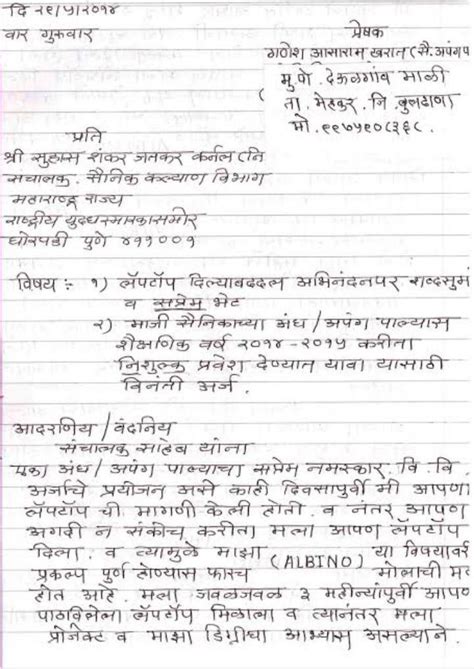 दि २९/५/२०१४
वार गुरुवार
प्रेषक
गणेश आसाराम खरात (से. अपंग प
मु. पो. देऊळगांव माळी
ता. मेहकर. जि. बुलढाणा
मो. ९९७५१०८३६८.
प्रति
श्री सुहास शंकर जतकर कर्नल (नि
संचालक. सैनिक कल्याण विभाग
महाराष्ट्र राज्य
राष्ट्रीय युध्दस्मारकासमोर
घोरपडी पुणे ४११००१
विषय :- १) लॅपटॉप दिल्याबददल अभिनंदनपर शब्दसुमं
व सप्रेम भेट
२) माजी सैनिकाच्या अंध / अपंग पाल्यास
शैक्षणिक वर्ष २०१४-२०१५ करीता
निशुल्क प्रवेश देण्यात यावा यासाठी
विनंती अर्ज.
आदरणिय / वंदनिय
संचालक साहेब यांना
एका अंध / अपंग पाल्याचा सप्रेम नमस्कार. वि. वि.
अर्जाचे प्रयोजन असे काही दिवसापुर्वी मी आपणा
लॅपटॉप ची मागणी केली होती. व नंतर आपण
अगदी न संकोच करीता मला आपण लॅपटॉप
दिला. व त्यामुळे माझा (ALBINO) या विषयावर
प्रकल्प पुर्ण होण्यास फारच मोलाची मद
होत आहे. मला जवळजवळ ३ महीन्यांपुर्वी आपण
पाठविलेला लॅपटॉप मिळाला व त्यानंतर मला
प्रोजेक्ट व माझा डिग्रीचा अभ्यास असल्याने.